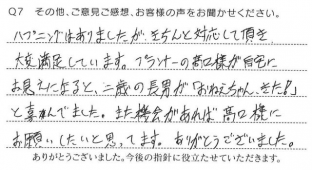 Q7 その他、ご意見ご感想、お客様の声をお聞かせください。
ハプニングはありましたが、きちんと対応して頂き
大変満足しています。プランナーの髙口様が自宅に
お見えになると、二歳の長男が「おねえちゃん、きた！」
と喜んでました。また機会があれば髙口様に
お願いしたいと思ってます。ありがとうございました。
ありがとうございました。今後の指針に役立たせていただきます。